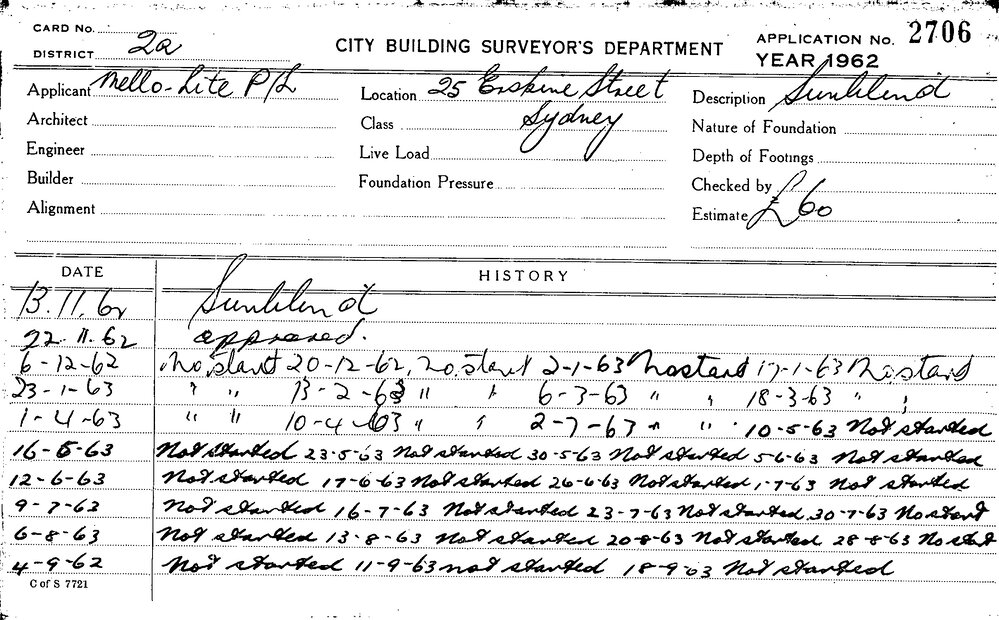 CARD No.
DISTRICT 2a
CITY BUILDING SURVEYOR'S DEPARTMENT
APPLICATION No. 2706
YEAR 1962
Applicant Mello-Lite P/L Location 25 Erskine Street Description Sunblind
Architect Class Sydney Nature of Foundation
Engineer Live Load Depth of Footings
Builder Foundation Pressure Checked by
Alignment Estimate £60
DATE HISTORY
13.11.62 Sunblind
22.11.62 approved.
6-12-62 No start 20-12-62, No start 2-1-63 No start 17-1-63 No start
23-1-63 " " 13-2-63 " " 6-3-63 " " 18-3-63 " "
1-4-63 " " 10-4-63 " " 2-7-63 " " 10-5-63 Not started
16-5-63 Not started 23-5-63 Not started 30-5-63 Not started 5-6-63 Not started
12-6-63 Not started 17-6-63 Not started 26-6-63 Not started 1-7-63 Not started
9-7-62 Not started 16-7-63 Not started 23-7-63 Not started 30-7-63 No start
6-8-63 Not started 13-8-63 Not started 20-8-63 Not started 28-8-63 No start
4-9-62 Not started 11-9-63 not started 18-9-63 Not started
C of S 7721